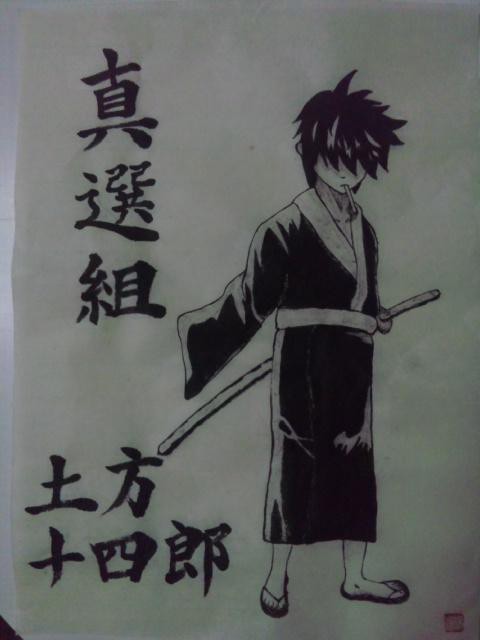 真選組
土方
十四郎